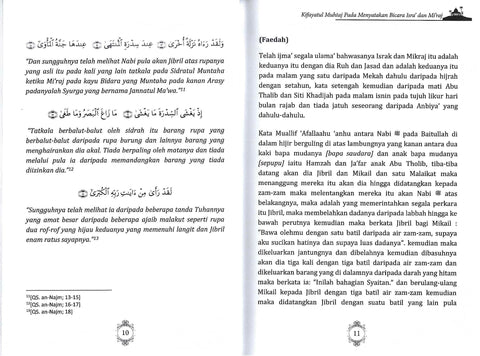 وَلَقَدْ رَءَاهُ نَزْلَةً أُخْرَىٰ ۝ عِندَ سِدْرَةِ ٱلْمُنتَهَىٰ ۝ عِندَهَا جَنَّةُ ٱلْمَأْوَىٰٓ ۝
"Dan sungguhnya telah melihat Nabi pula akan Jibril atas rupanya
yang asli itu pada kali yang lain tatkala pada Sidratul Muntaha
ketika Mi'raj pada kayu Bidara yang Muntaha pada kanan Arasy
padanyalah Syurga yang bernama Jannatul Ma'wa."¹¹
إِذْ يَغْشَى ٱلسِّدْرَةَ مَا يَغْشَىٰ ۝ مَا زَاغَ ٱلْبَصَرُ وَمَا طَغَىٰ ۝
"Tatkala berbalut-balut oleh sidrah itu barang rupa yang
berbalut-balut daripada rupa burung dan lainnya barang yang
menghairankan dia akal. Tiada berpaling oleh matanya dan tiada
melalui pula ia daripada memandangkan barang yang tiada
diizinkan dia."¹²
لَقَدْ رَأَىٰ مِنْ ءَايَٰتِ رَبِّهِ ٱلْكُبْرَىٰٓ ۝
"Sungguhnya telah melihat ia daripada beberapa tanda Tuhannya
yang amat besar daripada beberapa ajaib malakut seperti rupa
dua rof-rof yang hijau keduanya yang memenuhi langit dan Jibril
enam ratus sayapnya."¹³
¹¹(QS. an-Najm; 13-15)
¹²(QS. an-Najm; 16-17)
¹³(QS. an-Najm; 18)
10
Kifayatul Muhtaj Pada Menyatakan Bicara Isra' dan Mi'raj
(Faedah)
Telah ijma' segala ulama' bahwasanya Israk dan Mikraj itu adalah
keduanya itu dengan dia Ruh dan Jasad dan adalah keduanya itu
pada malam yang satu daripada Mekah dahulu daripada hijrah
dengan setahun, kata setengah kemudian daripada mati Abu
Thalib dan Siti Khadijah pada malam isnin pada tujuh likur hari
bulan rajab dan tiada jatuh seseorang daripada Anbiya' yang
dahulu-dahulu.
Kata Muallif 'Afallaahu 'anhu antara Nabi ﷺ pada Baitullah di
dalam hijir berguling di atas lambungnya yang kanan antara dua
kaki bapa mudanya [bapa saudara] dan anak bapa mudanya
[sepupu] iaitu Hamzah dan Ja'far anak Abu Tholib, tiba-tiba
datang akan dia Jibril dan Mikail dan satu Malaikat maka
menanggung mereka itu akan dia hingga didatangkan kepada
zam-zam maka melentangkan mereka itu akan Nabi ﷺ atas
belakangnya, maka adalah yang memerintahkan segala perkara
itu Jibril, maka membelahkan dadanya daripada labbah hingga ke
bawah perutnya kemudian maka berkata Jibril bagi Mikail :
"Bawa olehmu dengan satu batil daripada air zam-zam, supaya
aku sucikan hatinya dan supaya luas dadanya". kemudian maka
dikeluarkan jantungnya dan dibelahnya kemudian dibasuhnya
akan dia tiga kali dengan tiga batil daripada air zam-zam dan
dikeluarkan barang yang di dalamnya daripada darah yang hitam
maka berkata ia: "Inilah bahagian Syaitan." dan berulang-ulang
Mikail kepada Jibril dengan tiga batil air zam-zam kemudian
maka didatangkan Jibril dengan suatu batil yang lain pula
11